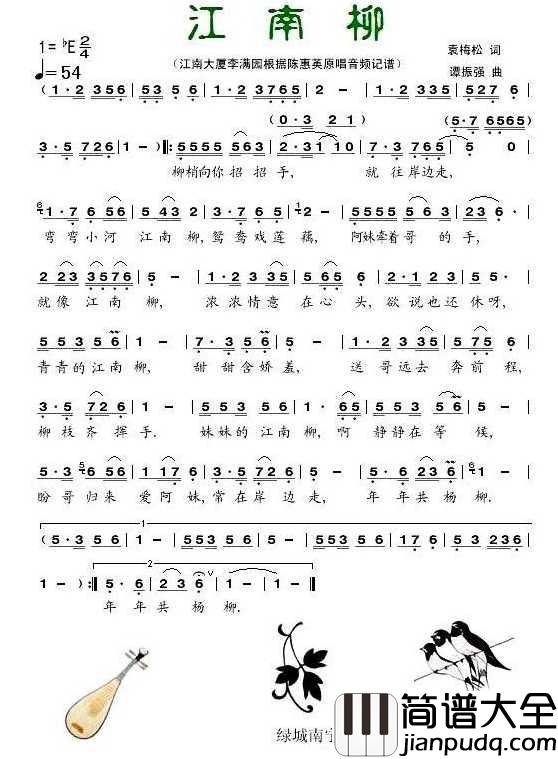 江南柳
1=♭E 2/4
♩=54
（江南大厦李满园根据陈惠英原唱音频记谱）
袁梅松 词
谭振强 曲
(1·2 356|53 5 6|1·2 3765|1·2 335|527 6|
(0·3 21) (5·7 6565)
3·5 726|1 -)‖:5555 563|2·31 10|7·3 765|5 0|
柳梢向你招招手, 就往岸边走,
6 1·7 6 56|5 43 2|3·7 65|1 2 -|5555 5 6|23 5|
弯弯小河 江南柳,鸳鸯戏莲藕, 阿妹牵着哥的手,
2 23 3576|5 -|1·2 3 35|5 65|2·1 23|5 -|
就像江南柳, 浓浓情意在心头,欲说也还休呀,
5 53 5 6|1 -|7·3 5 6|5 -|1·2 335|5 75|
青青的江南柳, 甜甜含娇羞, 送哥远去奔前程,
3·5 726|1 -|553 56|1·65|553 56|5 -|
柳枝齐挥手. 妹妹的江南柳,啊 静静在等候,
5·3 56|1 17 6|5·6 3 2|1 -|5·6|23 6|1 -|
盼哥归来爱阿妹,常在岸边走, 年年共杨柳.
1
(5·3 56|1 -|553 55|3 56|1 -|553 5|3 236|
2
1 -):‖5·6|23 6|1 -|1 -|
年年共杨柳.
绿城南宁
简谱大全
jianpudq.com